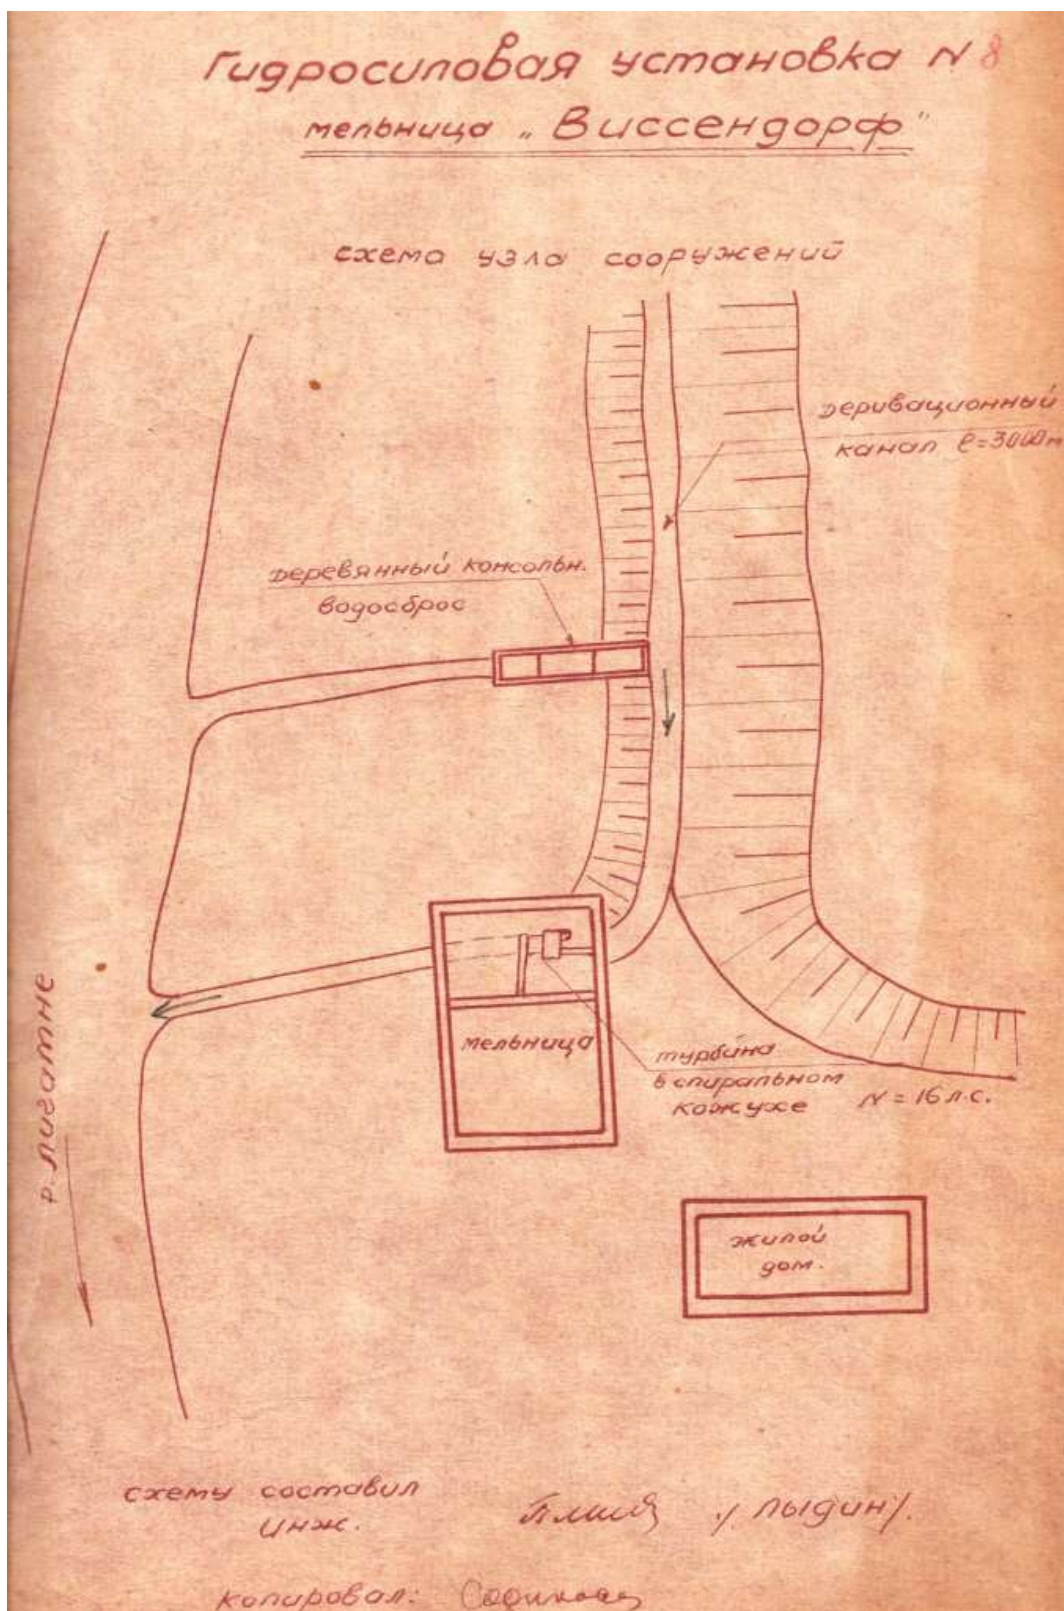 Гидросиловая установка N 8
мельница „Виссендорф"
схема узла сооружений
деривационный
канал ℓ=3000м
деревянный консольн.
водосброс
мельница
турбина
в спиральном
кожухе N = 16 л.с.
р. Лигатне
жилой
дом.
схему составил
инж. /Лыдин/.
копировал: